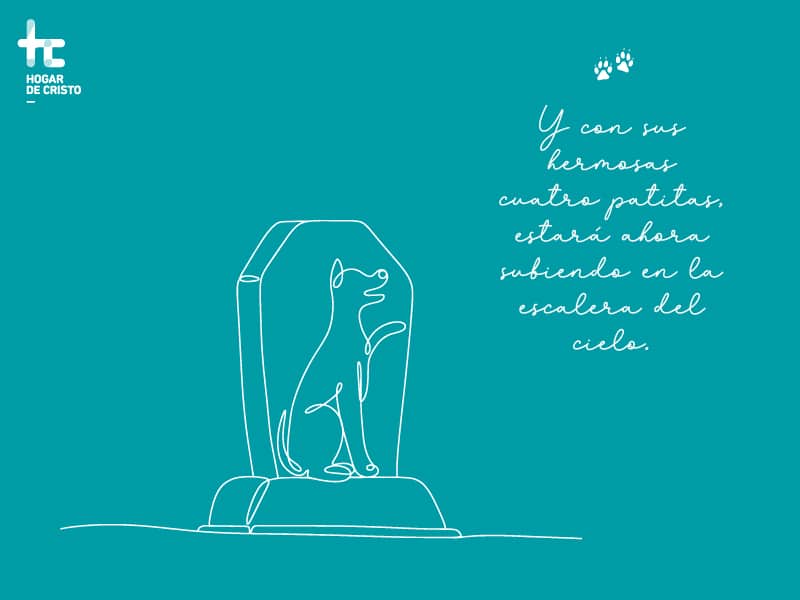 HOGAR
DE CRISTO
Y con sus
hermosas
cuatro patitas,
estará ahora
subiendo en la
escalera del
cielo.